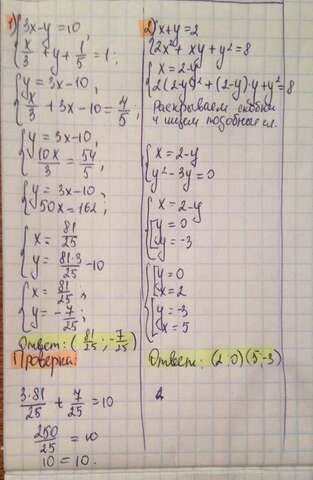 1) { 3x-y=10,
x/3 + y + 1/5 = 1;
{ y = 3x-10,
x/3 + 3x-10 = 4/5;
{ y = 3x-10,
10x/3 = 54/5;
{ y = 3x-10,
50x = 162;
{ x = 81/25
y = 81·3/25 - 10
{ x = 81/25;
y = -7/25;
Ответ: (81/25; -7/25)
Проверка:
3·81/25 + 7/25 = 10
250/25 = 10
10 = 10.
2) { x+y=2
2x²+xy+y²=8
{ x = 2-y
2(2-y)²+(2-y)·y+y²=8
Раскрываем скобки
и ищем подобные сл.
{ x = 2-y
y²-3y=0
{ x = 2-y
[ y = 0
y = -3
{ [ y = 0
x = 2
[ y = -3
x = 5
Ответ: (2;0)(5;-3)